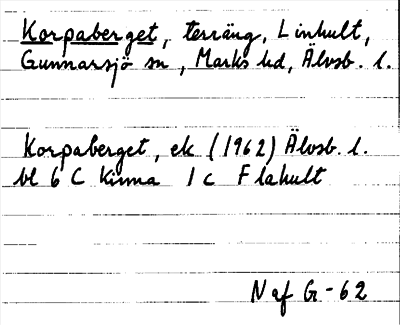 Korpaberget, terräng, Linhult,
Gunnarsjö sn, Marks hd, Älvsb. l.
Korpaberget, ek (1962) Älvsb. l.
bl 6 C Kinna 1 c Flahult
Naf G-62